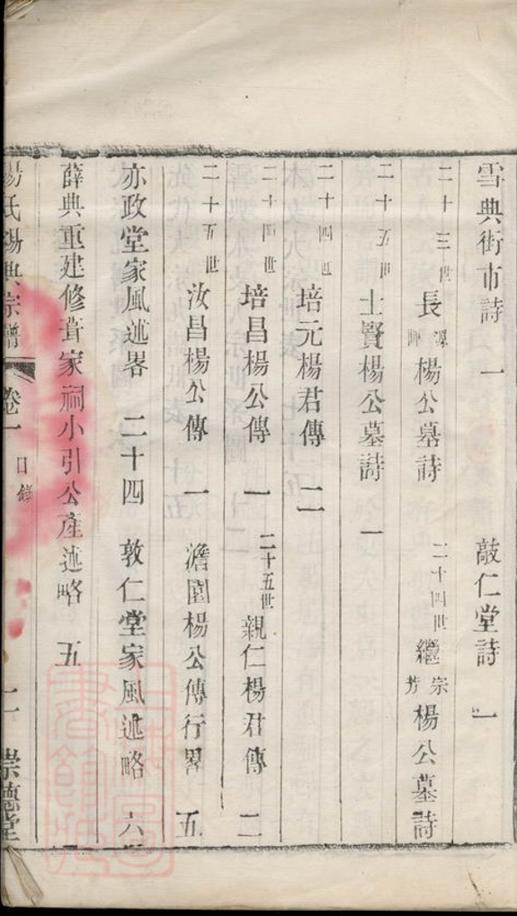 雪典街市詩 一 敲仁堂詩 一
二十三世 長 楊公墓詩 二十四世 繼宗芳 楊公墓詩
二十五世 士賢楊公墓詩 一
二十四世 培元楊君傳 二
二十四世 培昌楊公傳 一 二十五世 親仁楊君傳 二
二十五世 汝昌楊公傳 一 澹園楊公傳行畧 五
亦政堂家風述畧 二十四 敦仁堂家風述略 六
薛典重建修葺家祠小引公產述略 五
楊氏湯典宗譜 卷一 目錄 二 崇德堂